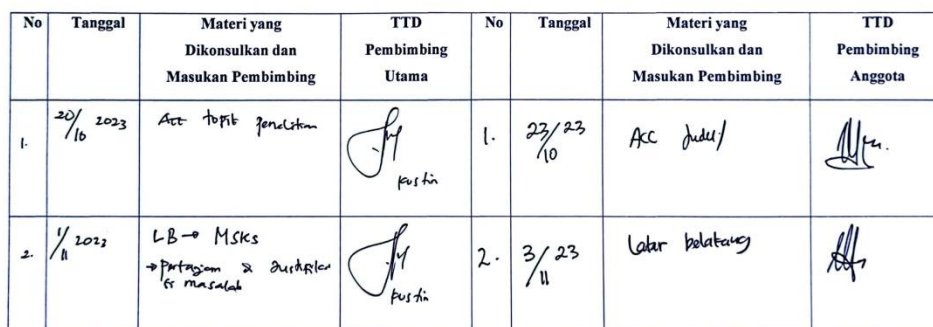 No Tanggal Materi yang Dikonsulkan dan Masukan Pembimbing TTD Pembimbing Utama No Tanggal Materi yang Dikonsulkan dan Masukan Pembimbing TTD Pembimbing Anggota
1. 20/10 2023 Acc topik penelitian kustin 1. 23/23 /10 ACC Judul
2. 1/11 2023 LB → MSKS kustin 2. 3/23 /11 Latar belakang
→ Pertajam & Justifikasi masalah